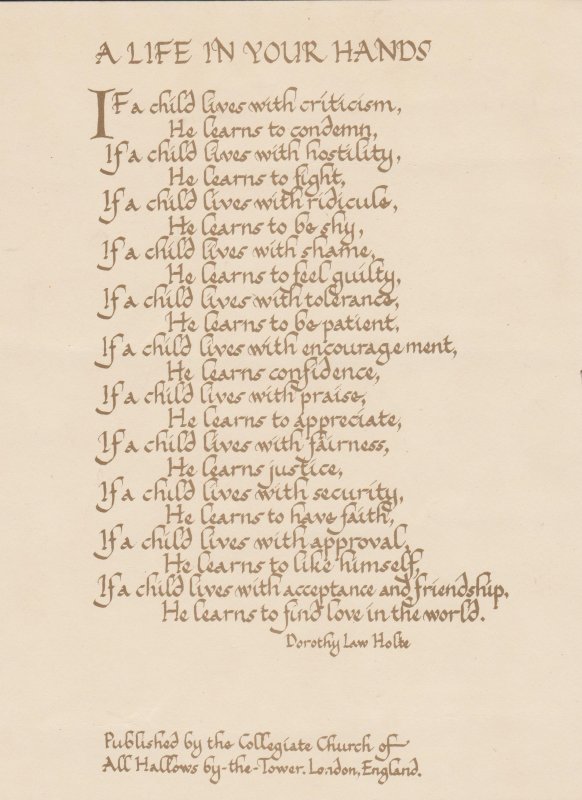 A LIFE IN YOUR HANDS
If a child lives with criticism,
He learns to condemn,
If a child lives with hostility,
He learns to fight,
If a child lives with ridicule,
He learns to be shy,
If a child lives with shame,
He learns to feel guilty,
If a child lives with tolerance,
He learns to be patient,
If a child lives with encouragement,
He learns confidence,
If a child lives with praise,
He learns to appreciate,
If a child lives with fairness,
He learns justice,
If a child lives with security,
He learns to have faith,
If a child lives with approval,
He learns to like himself,
If a child lives with acceptance and friendship,
He learns to find love in the world.
Dorothy Law Holte
Published by the Collegiate Church of
All Hallows by-the-Tower. London, England.